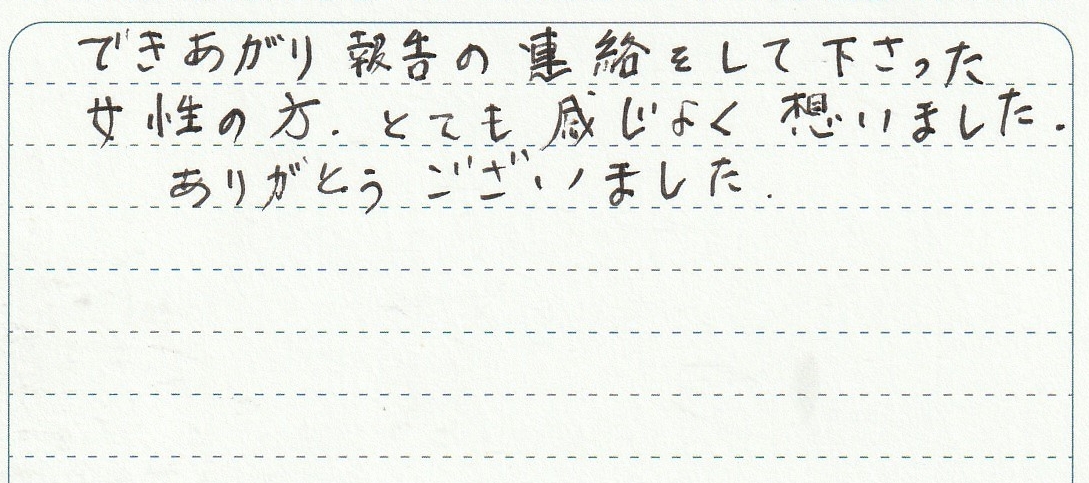 できあがり報告の連絡をして下さった
女性の方.とても感じよく想いました.
ありがとうございました.